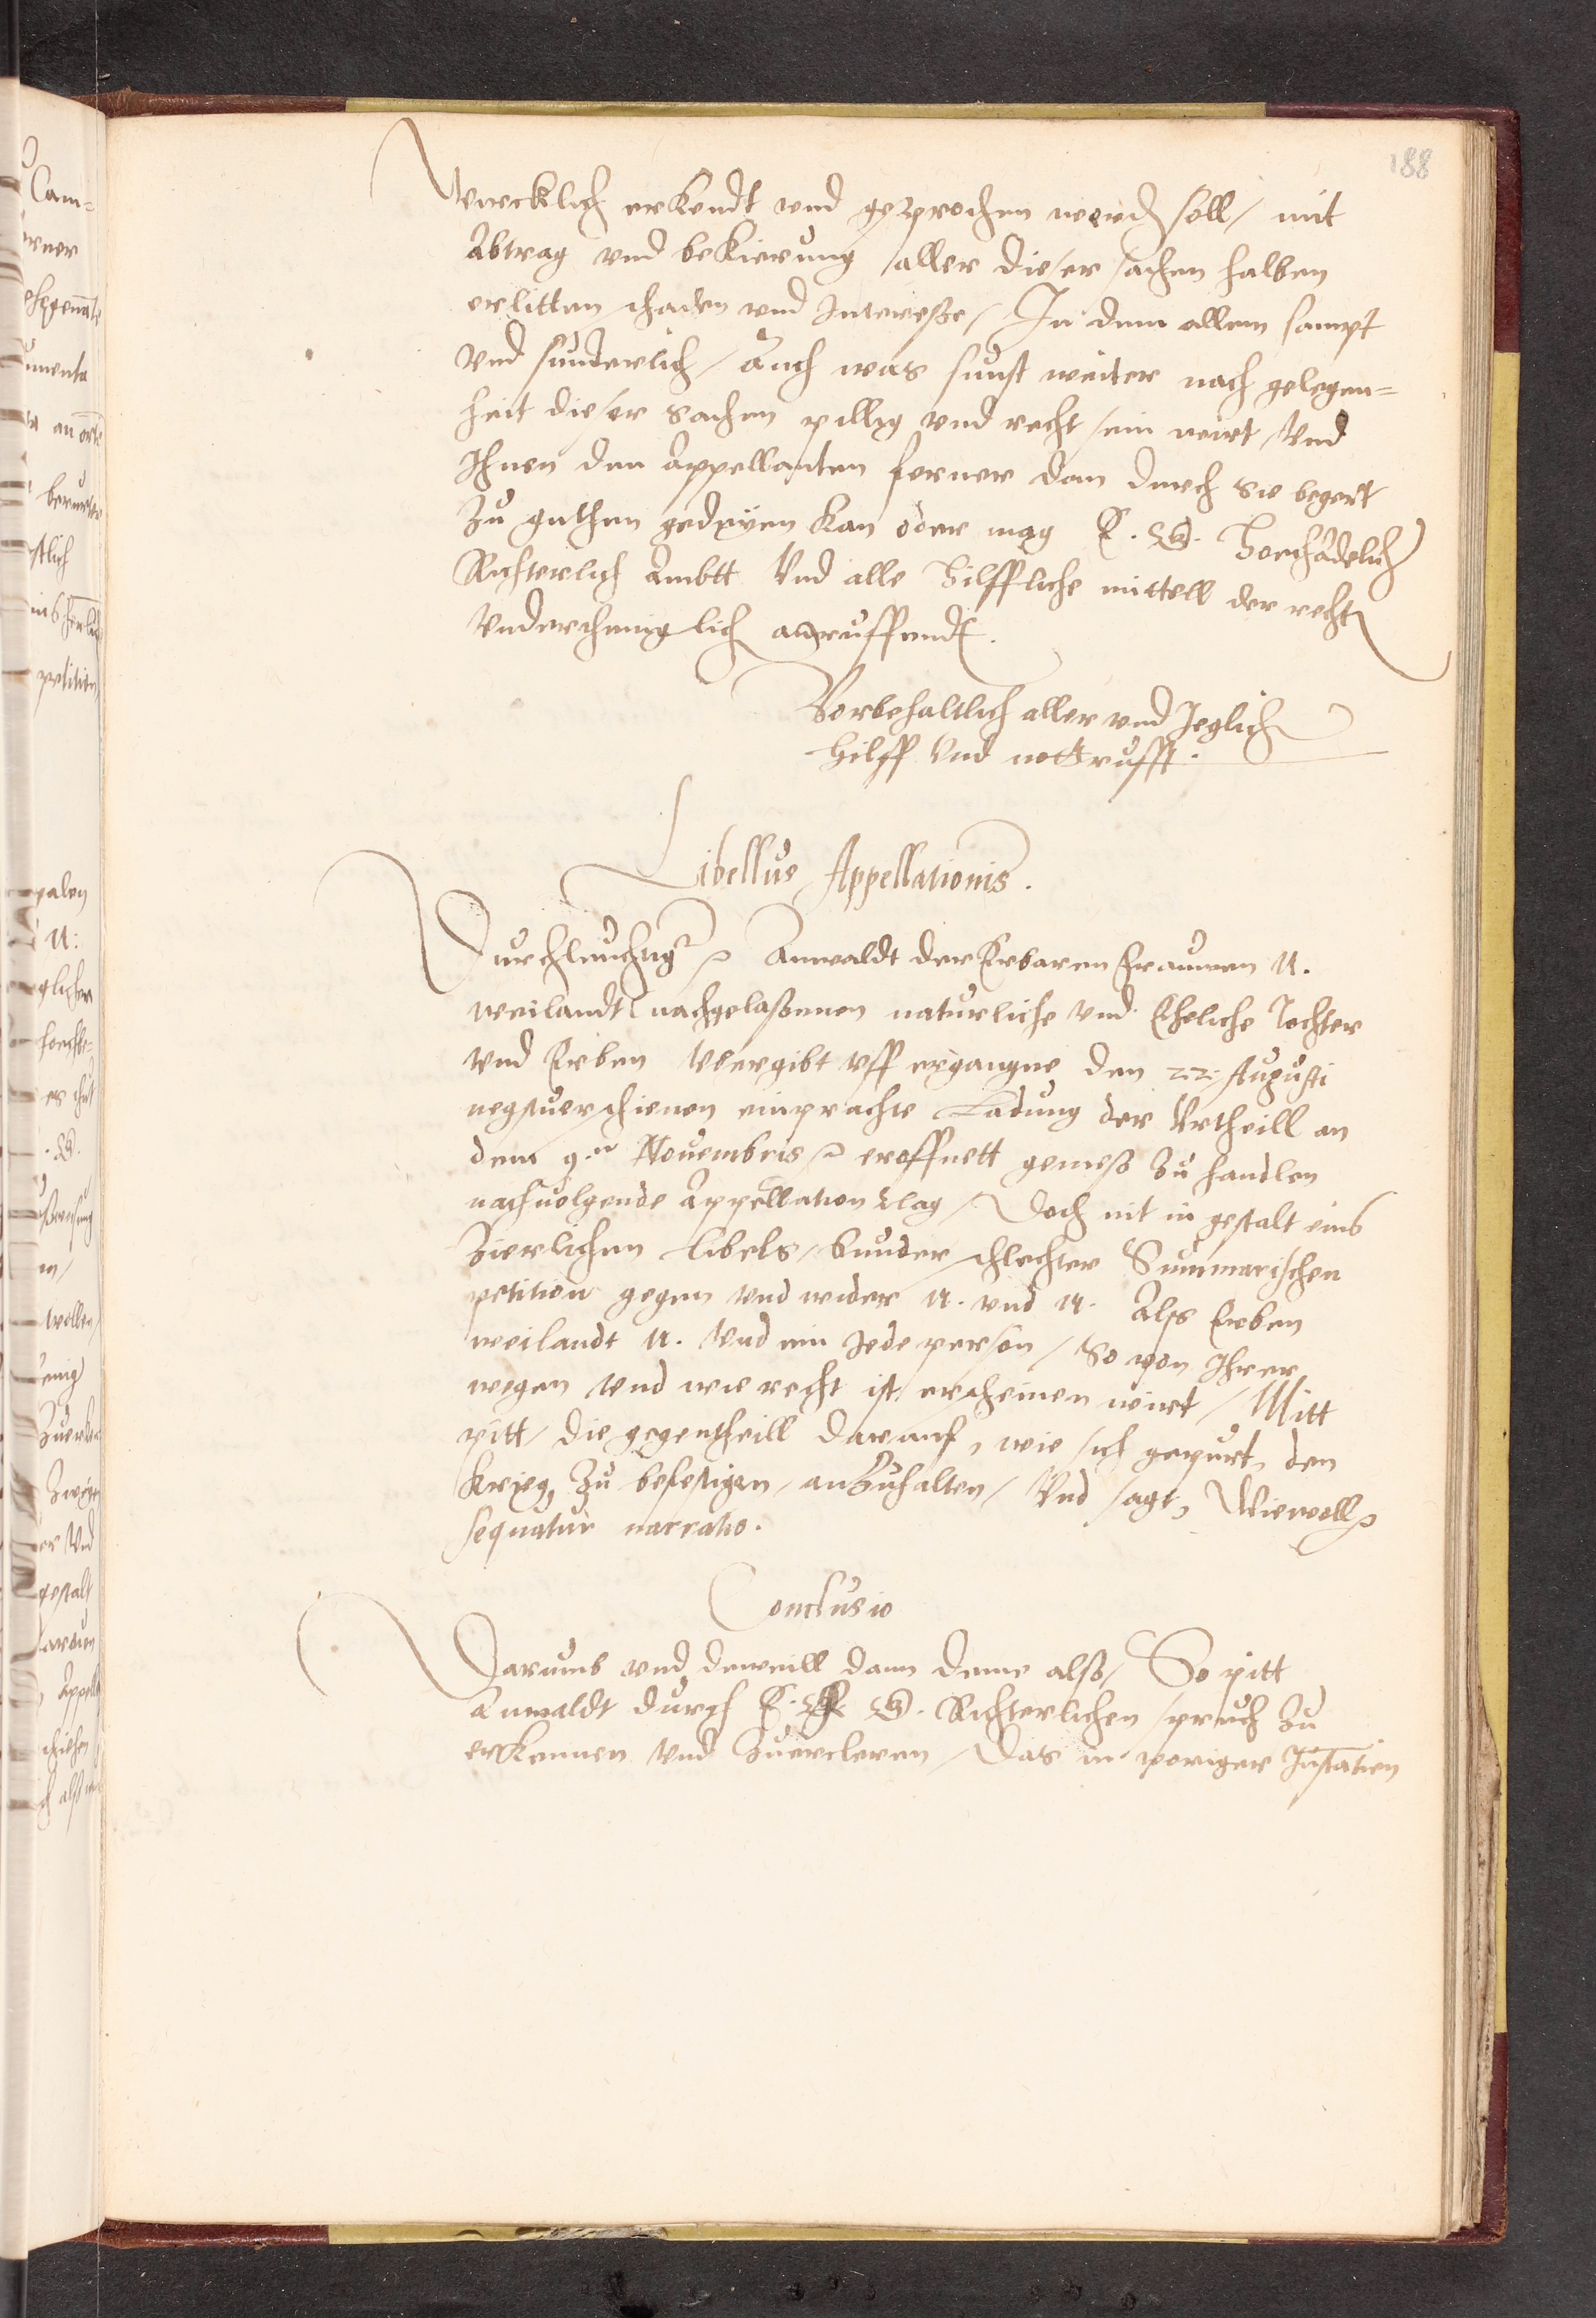 188
wircklich erkendt vnd gesprochen werden soll / mit
Abtrag vnd bekierung / aller dieser sachen halben
erlitten schaden vnd Interesse / In dem allem sampt
vnd sunderlich / Auch was sunst weiter nach gelegen=
heit dieser sachen pillig vnd recht sein wirt / Vnd
Ihnen den Appellanten ferner dan durch sie begert
Zu guthem gedeyen kan oder mag E. G. Hochadelich
Richterlich Ambtt Vnd alle Hilffliche mittell der recht
Vnderthenig lich anruffendt.
Vorbehaltlich aller vnd Jeglich
Hilff Vnd notturfft.
Libellus Appellationis.
Durchleuchtigr Anwaldt der Erbaren Frauwen N.
weilandt nachgelaßenen naturliche vnd Eheliche Tochter
vnd Erben Vbergibt vff ergangne den 22. Augusti
negstuerschienen einprachte Ladung der Vrtheill an
dem 9.n Nouembris eroffnett gemeß Zu handlen
nachuolgende Appellation clag / Doch nit in gestalt eins
Zierlichen libels / sunder schlechter Summarischen
petition gegen vnd wider N. vnd N. Alß Erben
weilandt N. Vnd ein Jede person / So von Ihrer
wegen vnd wie recht ist erscheinen wirt / Mitt
pitt / die gegentheill darauf, wie sich gepurt, den
krieg Zu befestigen / anZuhalten / Vnd sagt, Wiewoll
sequatur narratio.
Conclusio
Darumb vnd dieweill dann deme alß / So pitt
Anwaldt durch E. G. Richterlichen spruch Zu
erkennen Vnd Zuercleren / Das in voriger Instantien